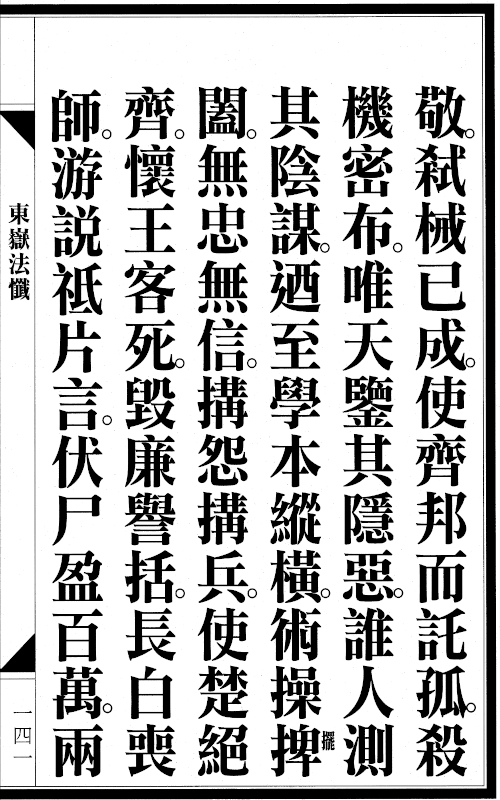 敬。弒械已成。使齊邦而託孤。殺
機密布。唯天鑒其隱惡。誰人測
其陰謀。迺至學本縱橫。術操捭擺
闔。無忠無信。搆怨搆兵。使楚絕
齊。懷王客死。毀廉譽括。長白喪
師。游説祗片言。伏尸盈百萬。兩
東嶽法懺
一四一